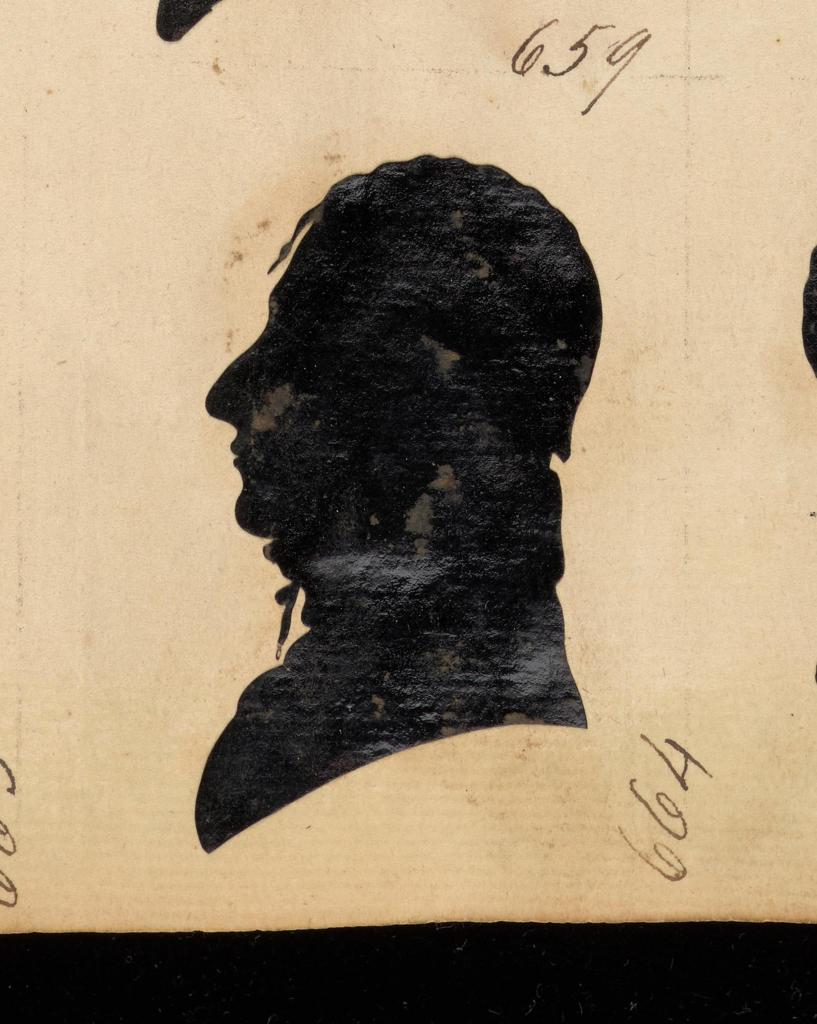 659
664